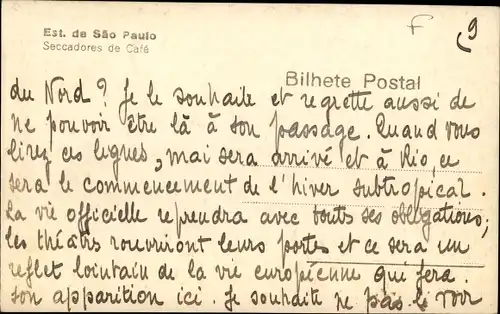 Est. de São Paulo
Seccadores de Café
F 9
Bilhete Postal
du Nord ? Je le souhaite et regrette aussi de
ne pouvoir être là à son passage. Quand vous
lirez ces lignes, mai sera arrivé et à Rio, ce
sera le commencement de l'hiver subtropical.
La vie officielle reprendra avec toutes ses obligations;
les théâtres rouvriront leurs portes et ce sera un
reflet lointain de la vie européenne qui fera
son apparition ici. Je souhaite ne pas le voir